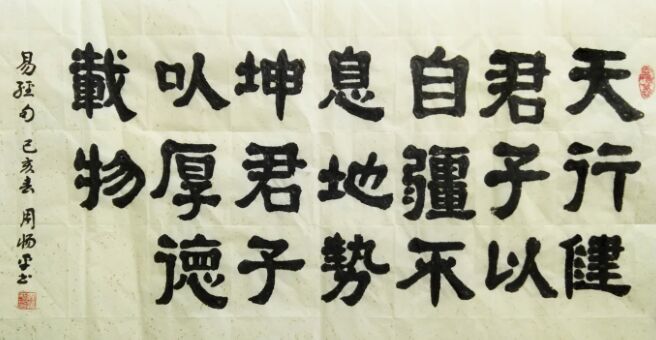 天行健
君子以
自疆不
息地勢
坤君子
㕥厚德
載物
易經句 己亥春 周